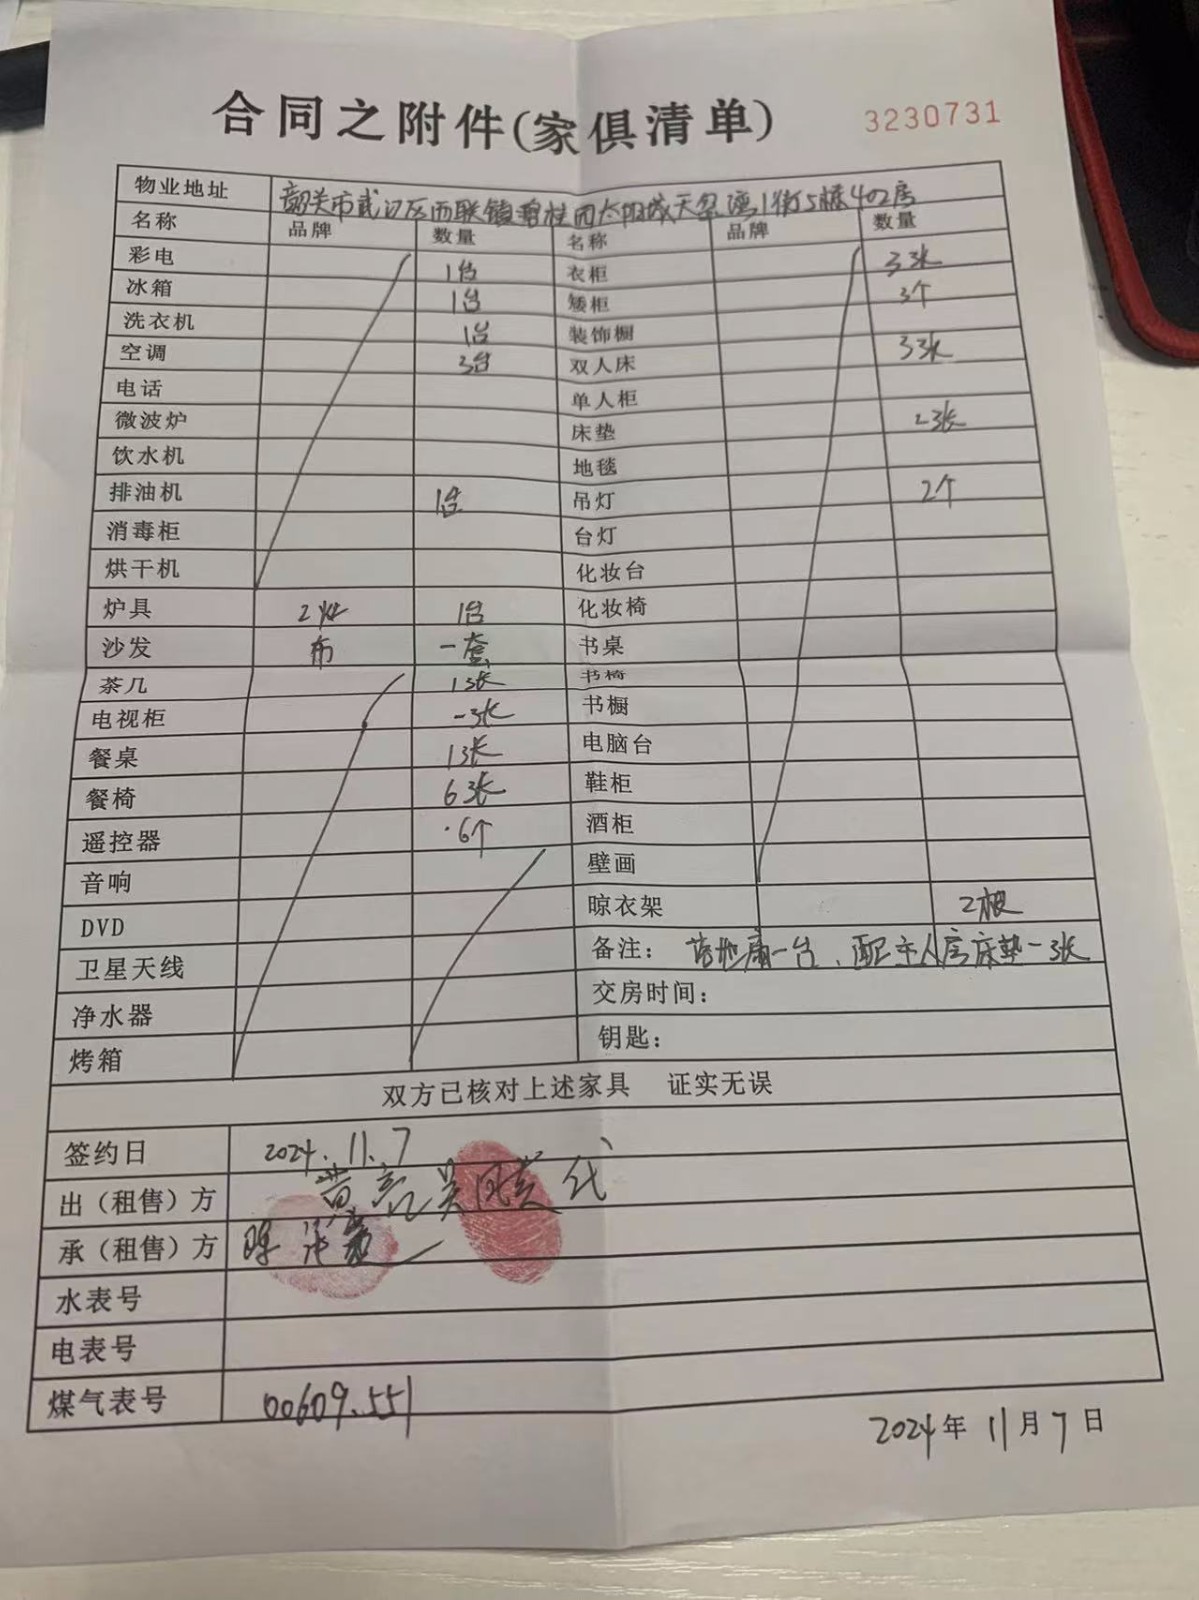 合同之附件(家俱清单) 3230731
物业地址 韶关市武江区西联镇碧桂园太阳城天玺湾1街5栋402房
名称 品牌 数量 名称 品牌 数量
彩电 1台 衣柜 3张
冰箱 1台 矮柜 3个
洗衣机 1台 装饰橱
空调 3台 双人床 3张
电话 单人柜
微波炉 床垫 2张
饮水机 地毯
排油机 1台 吊灯 2个
消毒柜 台灯
烘干机 化妆台
炉具 2灶 1台 化妆椅
沙发 布 一套 书桌
茶几 1张 书椅
电视柜 一张 书橱
餐桌 1张 电脑台
餐椅 6张 鞋柜
遥控器 6个 酒柜
音响 壁画
DVD 晾衣架 2根
卫星天线 备注: 落地扇一台、配主人房床垫一张
净水器 交房时间:
烤箱 钥匙:
双方已核对上述家具 证实无误
签约日 2024.11.7
出（租售）方 黄亮 吴凤英 代
承（租售）方
水表号
电表号
煤气表号 00609.551
2024年 11月 7日